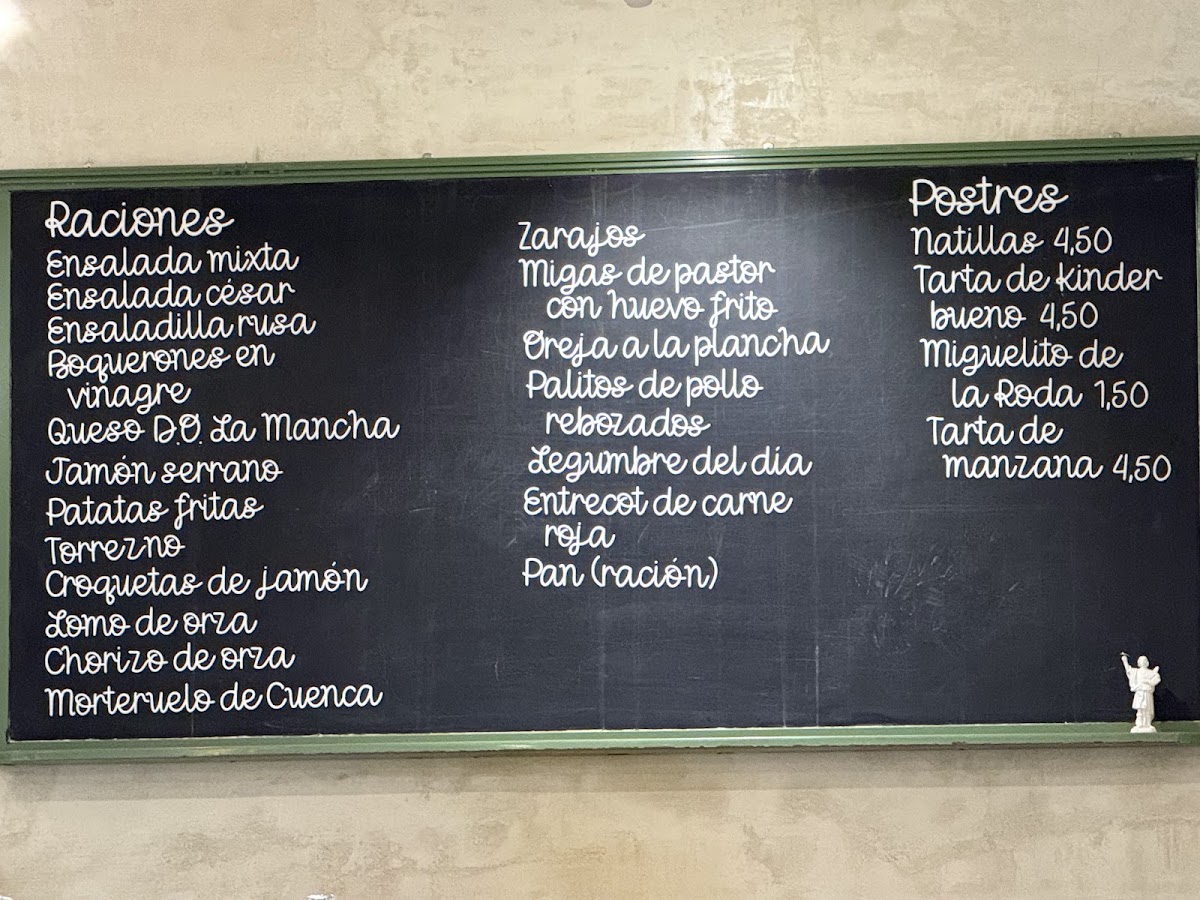 Raciones
Ensalada mixta
Ensalada césar
Ensaladilla rusa
Boquerones en
vinagre
Queso D.O. La Mancha
Jamón serrano
Patatas fritas
Torrezno
Croquetas de jamón
Lomo de orza
Chorizo de orza
Morteruelo de Cuenca
Zarajos
Migas de pastor
con huevo frito
Oreja a la plancha
Palitos de pollo
rebozados
Legumbre del día
Entrecot de carne
roja
Pan (ración)
Postres
Natillas 4,50
Tarta de Kinder
bueno 4,50
Miguelito de
la Roda 1,50
Tarta de
manzana 4,50